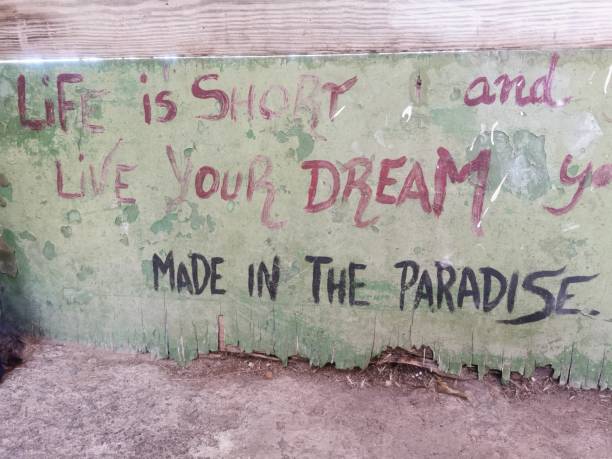 LiFE is SHORT and
LiVE YOUR DREAM
MADE IN THE PARADISE.